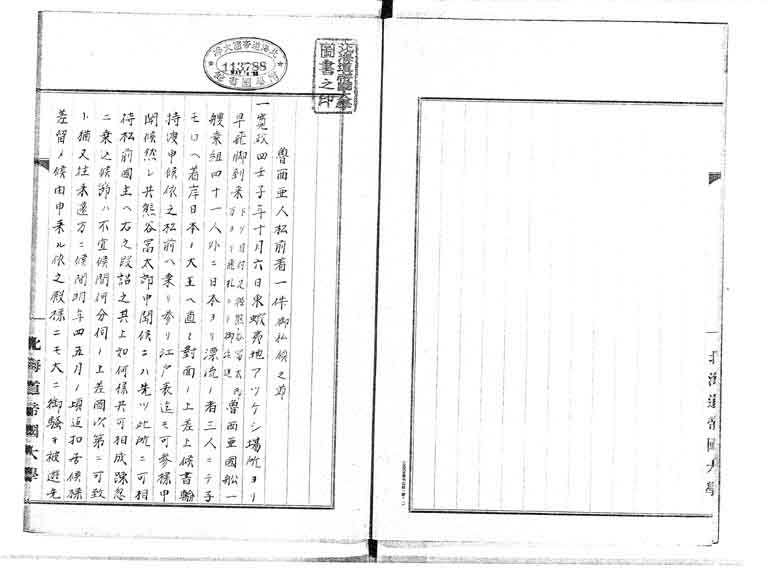 北海道帝國大學圖書之印
北海道帝國大學
113788
附屬圖書館
魯西亜人松前着一件御私候之節
一寛政四壬子年十月六日東蝦夷地アツケシ場所ヨリ
早飛脚到来 魯西亜國船一
艘乗組四十一人外ニ日本ヨリ漂流ノ者三人ニテ子
モロヘ着岸日本ノ大王ヘ直ニ對面ノ上差上候書翰
持渡申候依之松前ヘ乗リ参リ江戸表迄モ可参様申
聞候然レ共熊谷冨太郎申聞候ニハ先ツ此所ニ可相
待松前國主ヘ右之段詰之其上如何様共可相成陳忽
ニ乗込候節ハ不宜候間何分伺ノ上差圖次第ニ可致
ト猶又往来遠方ニ候間明年四五月ノ頃迄扣居候様
差留メ候由申来ル依之殿様ニモ大ニ御騒キ被遊先
北海道帝國大學
北海道帝國大學